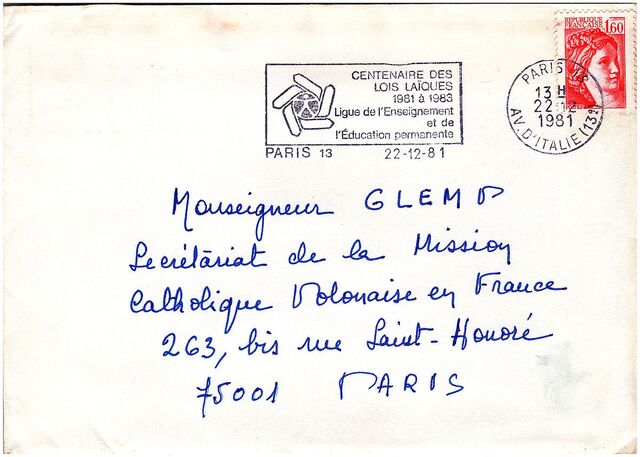 REPUBLIQUE
FRANÇAISE 1,60
CENTENAIRE DES
LOIS LAÏQUES
1981 à 1983
Ligue de l'Enseignement
et de
l'Éducation permanente
PARIS 13 22-12-81
PARIS
13 H
22-12
1981
AV. D'ITALIE (13E)
Monseigneur GLEMP
Secrétariat de la Mission
Catholique Polonaise en France
263, bis rue Saint-Honoré
75001 PARIS